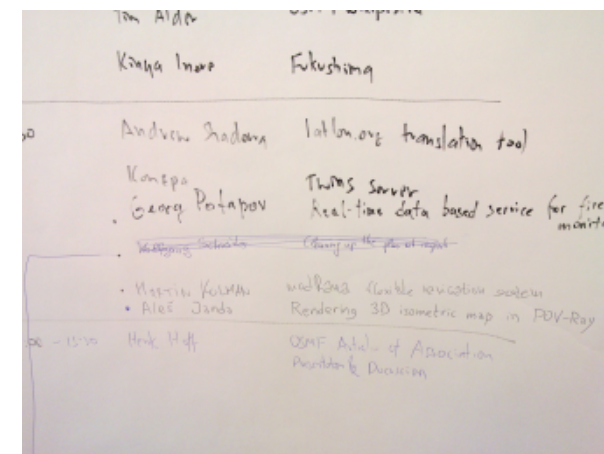 Tom Alder
Kinya Inoue Fukushima
Andrew Shadura latlon.org translation tool
Komzpa Twms Server
Georg Potapov Real-time data based service for fire
Martin Kolman modRana flexible navigation system
Aleš Janda Rendering 3D isometric map in POV-Ray
Henk Hoff OSMF Article of Association
Presentation & Discussion